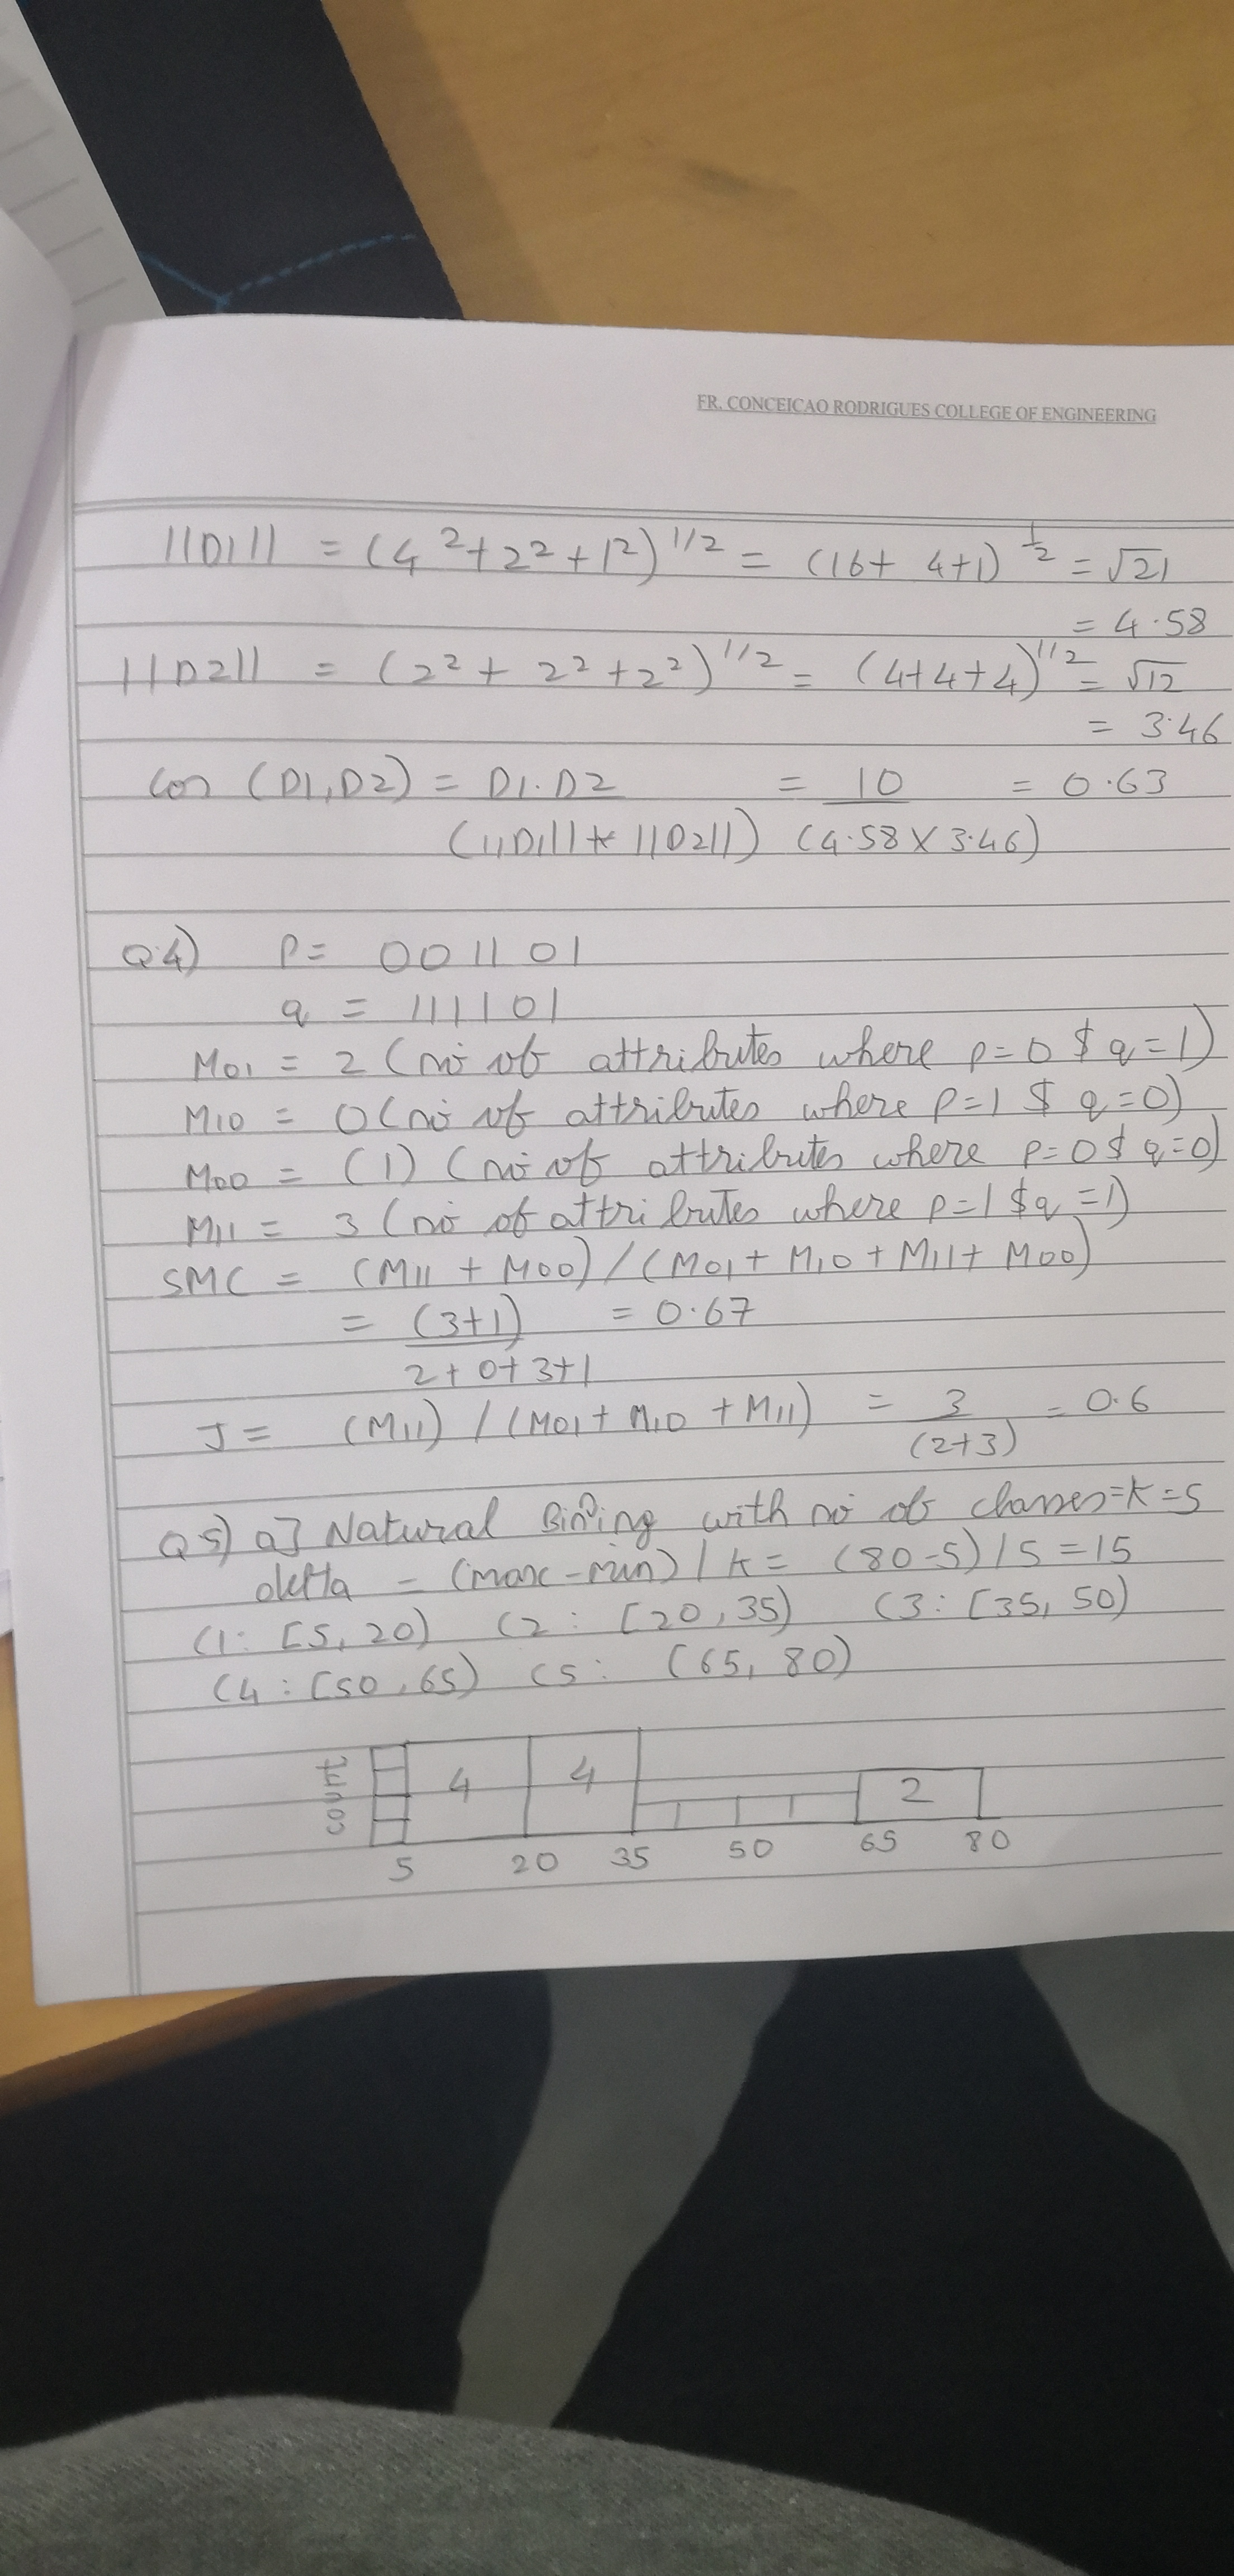 FR. CONCEICAO RODRIGUES COLLEGE OF ENGINEERING
||D1|| = (4²+2²+1²)^1/2 = (16+4+1)^1/2 = √21
= 4.58
||D2|| = (2²+2²+2²)^1/2 = (4+4+4)^1/2 = √12
= 3.46
cos (D1,D2) = D1.D2 = 10 = 0.63
(||D1||*||D2||) (4.58 X 3.46)
Q.4) P= 001101
q = 111101
M01 = 2 (no of attributes where p=0 $ q=1)
M10 = 0 (no of attributes where p=1 $ q=0)
M00 = (1) (no of attributes where p=0 $ q=0)
M11 = 3 (no of attributes where p=1 $ q=1)
SMC = (M11 + M00) / (M01 + M10 + M11 + M00)
= (3+1) = 0.67
2+0+3+1
J = (M11) / (M01 + M10 + M11) = 3 = 0.6
(2+3)
Q5) a] Natural Bining with no of classes=k=5
delta = (max-min) / k = (80-5)/5 = 15
C1: [5, 20) C2: [20,35) C3: [35, 50)
C4: [50,65) C5: (65, 80)
4 4
2
5 20 35 50 65 80